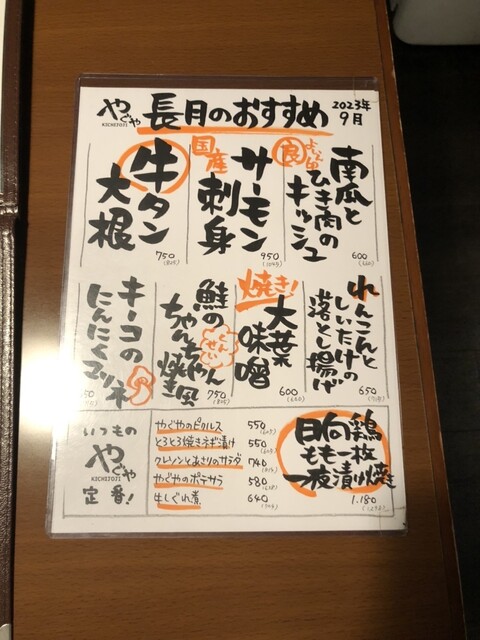 やぐや
KICHIJOJI
長月のおすすめ
2023年
9月
南瓜と
ひき肉の
キッシュ
600
(660)
国産
サーモン
刺身
950
牛タン
大根
750
(825)
れんこんと
しいたけの
落とし揚げ
650
焼き!
大葉
味噌
600
(660)
鮭の
ちゃんちゃん
焼き風
750
(825)
キーコの
にんにくマリネ
50
いつもの
やぐや
KICHIJOJI
定番!
やぐやのピクルス 550
とろとろ焼きネギ漬け 550
クレソンとあさりのサラダ 740
やぐやのポテサラ 580
牛しぐれ煮 640
日向鶏
もも一枚
一夜漬け焼き
1.180